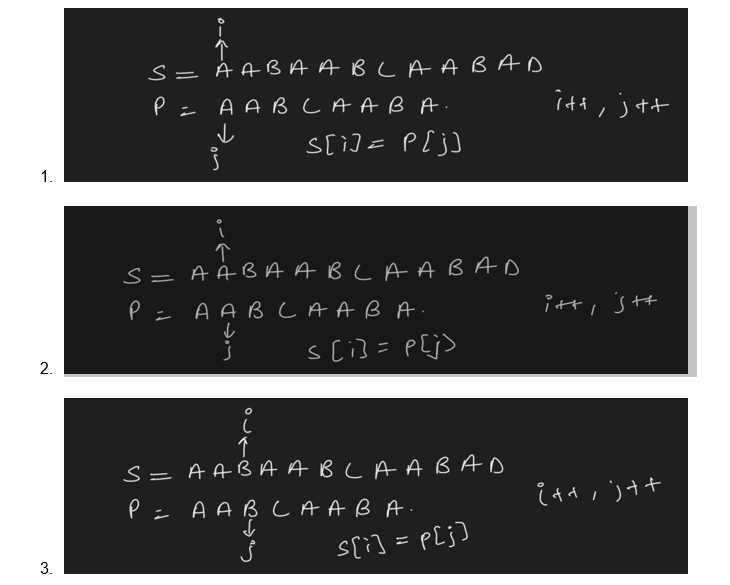 i
S = A A B A A B C A A B A D
P = A A B C A A B A. i++, j++
j S[i] = P[j]
1.
i
S = A A B A A B C A A B A D
P = A A B C A A B A. i++, j++
j S[i] = P[j]
2.
i
S = A A B A A B C A A B A D
P = A A B C A A B A. i++, j++
j S[i] = P[j]
3.